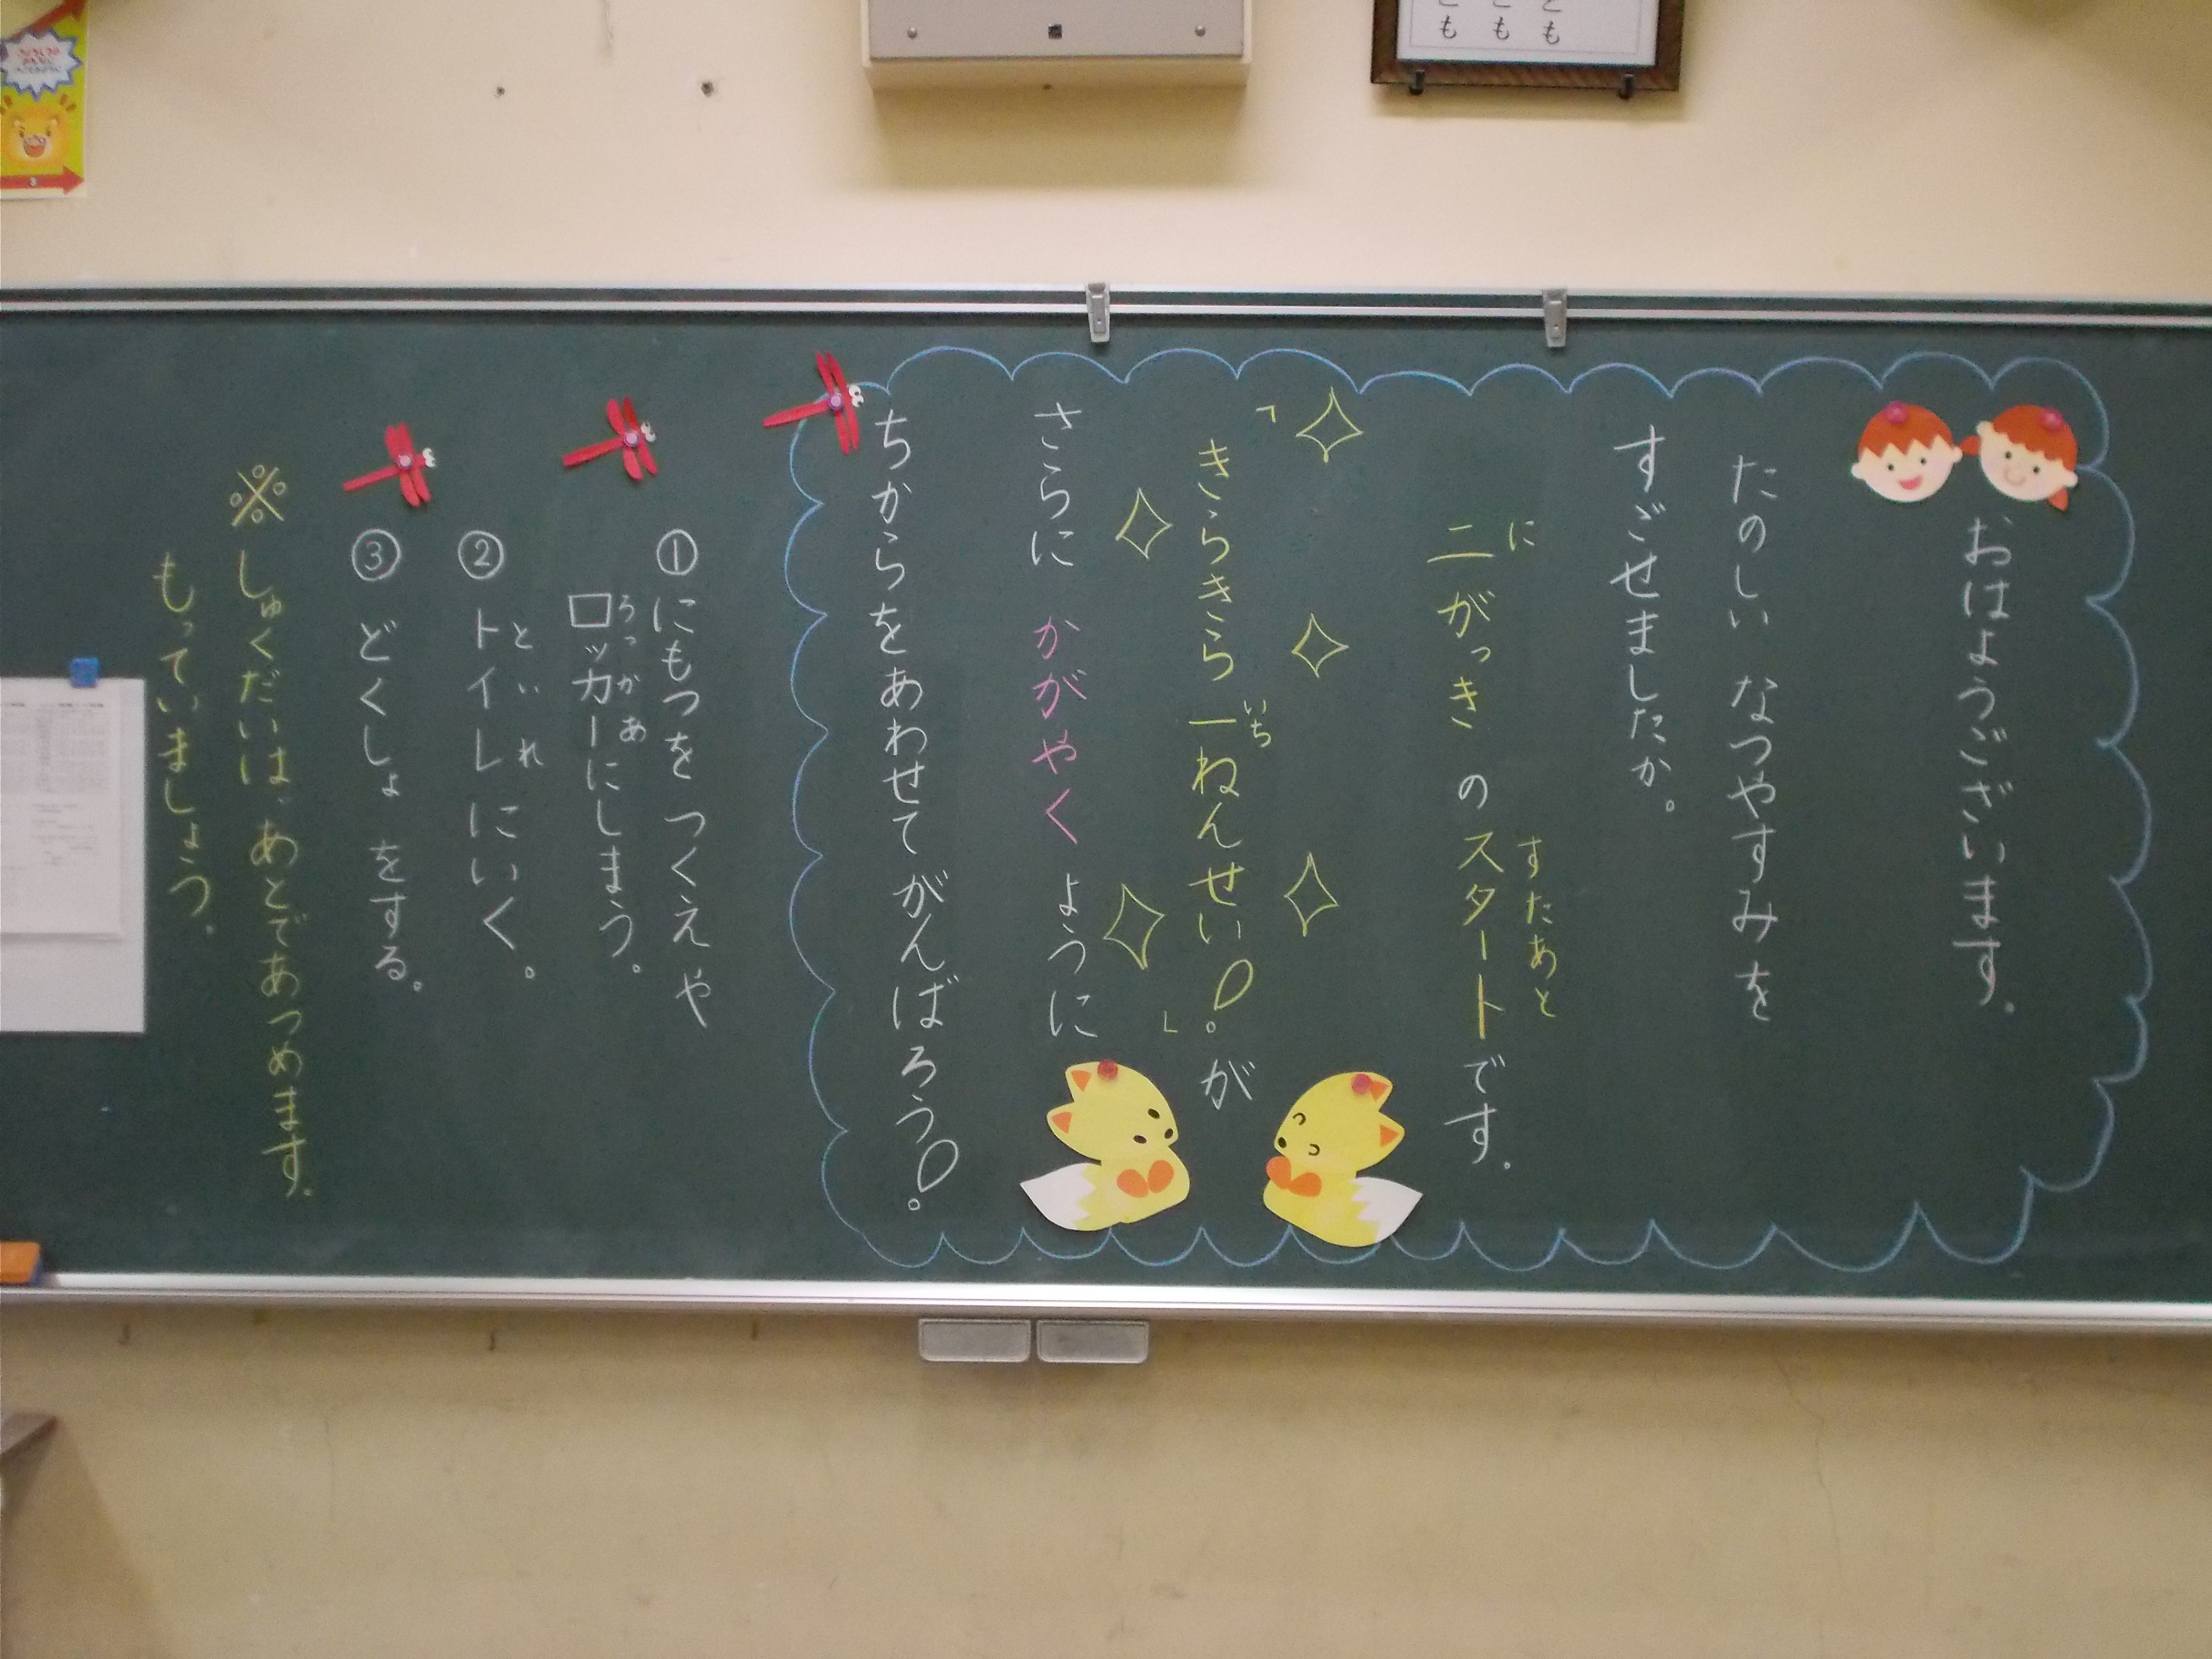 おはようございます。
たのしい なつやすみを
すごせましたか。
二がっき のスタートです。
に
すたあと
「きらきら一ねんせい!」が
いち
さらに かがやく ように
ちからをあわせて がんばろう!
①にもつを つくえや
ロッカーにしまう。
ろっかあ
②トイレにいく。
といれ
③どくしょ をする。
※しゅくだいは、あとであつめます。
もっていましょう。